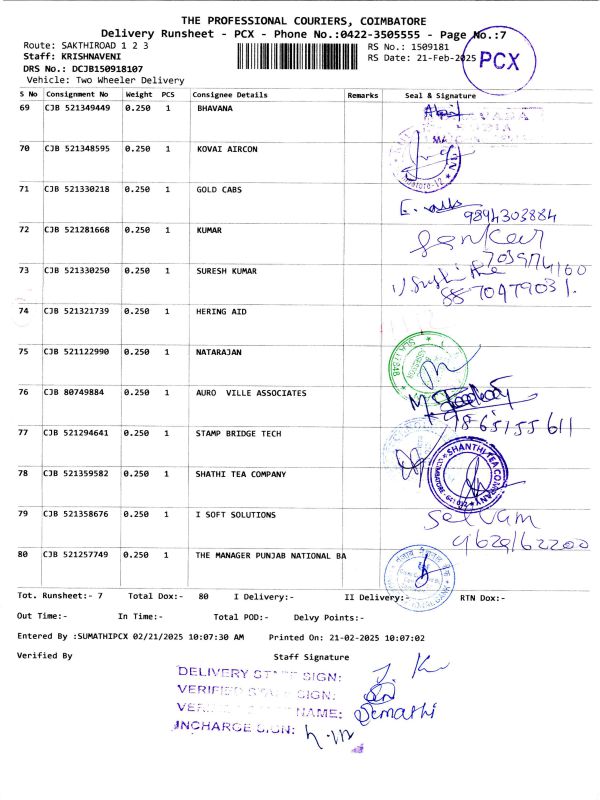 THE PROFESSIONAL COURIERS, COIMBATORE
Delivery Runsheet - PCX - Phone No.:0422-3505555 - Page No.:7
Route: SAKTHIROAD 1 2 3
RS No.: 1509181
Staff: KRISHNAVENI
RS Date: 21-Feb-2025
PCX
DRS No.: DCJB150918107
Vehicle: Two Wheeler Delivery
S No Consignment No Weight PCS Consignee Details Remarks Seal & Signature
69 CJB 521349449 0.250 1 BHAVANA
70 CJB 521348595 0.250 1 KOVAI AIRCON
71 CJB 521330218 0.250 1 GOLD CABS
9894303884
72 CJB 521281668 0.250 1 KUMAR
Sankar
73 CJB 521330250 0.250 1 SURESH KUMAR
74 CJB 521321739 0.250 1 HERING AID
75 CJB 521122990 0.250 1 NATARAJAN
76 CJB 80749884 0.250 1 AURO VILLE ASSOCIATES
9865155611
77 CJB 521294641 0.250 1 STAMP BRIDGE TECH
78 CJB 521359582 0.250 1 SHATHI TEA COMPANY
SHANTHI TEA COMPANY
79 CJB 521358676 0.250 1 I SOFT SOLUTIONS
Selvam
9629162200
80 CJB 521257749 0.250 1 THE MANAGER PUNJAB NATIONAL BA
Tot. Runsheet:- 7 Total Dox:- 80 I Delivery:- II Delivery:- RTN Dox:-
Out Time:- In Time:- Total POD:- Delvy Points:-
Entered By :SUMATHIPCX 02/21/2025 10:07:30 AM Printed On: 21-02-2025 10:07:02
Verified By Staff Signature
DELIVERY STAFF SIGN:
VERIFIED STAFF SIGN:
VERIFIED STAFF NAME: Sumathi
INCHARGE SIGN: